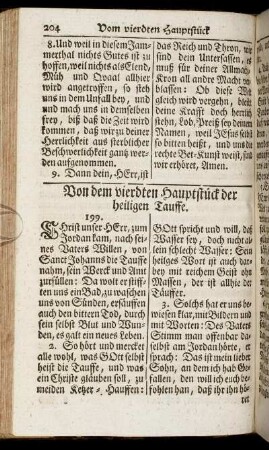 204 Vom vierdten Hauptstück
8. Und weil in diesem Jam-
merthal nichts Gutes ist zu
hoffen, weil nichts als Elend,
Müh und Quaal allhier
wird angetroffen, so steh
uns in dem Unfall bey, und
und mach uns in demselben
frey, biß daß die Zeit wird
kommen, daß wir zu deiner
Herrlichkeit aus sterblicher
Beschwerlichkeit ganz wer-
den aufgenommen.
9. Dann dein, HErr, ist
das Reich und Thron, wir
sind dein Untersassen, es
muß für deiner Allmacht
Kron all andre Macht ver-
blassen: Ob diese Welt
gleich wird vergehn, bleibt
deine Krafft doch herrlich
stehn, Lob, Preiß sey deinem
Namen, weil JEsus selbst
so bitten heist, und uns die
rechte Bet-Kunst weist, sind
wir erhöret, Amen.
Von dem vierdten Hauptstück der
heiligen Tauffe.
199.
CHrist unser HErr, zum
Jordan kam, nach sei-
nes Vaters Willen, von
Sanct Johanns die Tauffe
nahm, sein Werck und Amt
zurfüllen: Da wolt er stiff-
ten uns ein Bad, zu waschen
uns von Sünden, ersäuffen
auch den bittern Tod, durch
sein selbst Blut und Wun-
den, es galt ein neues Leben.
2. So hört und mercket
alle wohl, was GOtt selbst
heist die Tauffe, und was
ein Christe gläuben soll, zu
meiden Ketzer-Hauffen:
GOtt spricht und will, daß
Wasser sey, doch nicht all-
ein schlecht Wasser: Sein
heilges Wort ist auch dar-
bey mit reichem Geist ohn
Massen, der ist allhie der
Täuffer.
3. Solchs hat er uns be-
wiesen klar, mit Bildern und
mit Worten: Des Vaters
Stimm man offenbar da-
selbst am Jordan hörte, er
sprach: Das ist mein lieber
Sohn, an dem ich hab Ge-
fallen, den will ich euch be-
fohlen han, daß ihr ihn hö-
ret